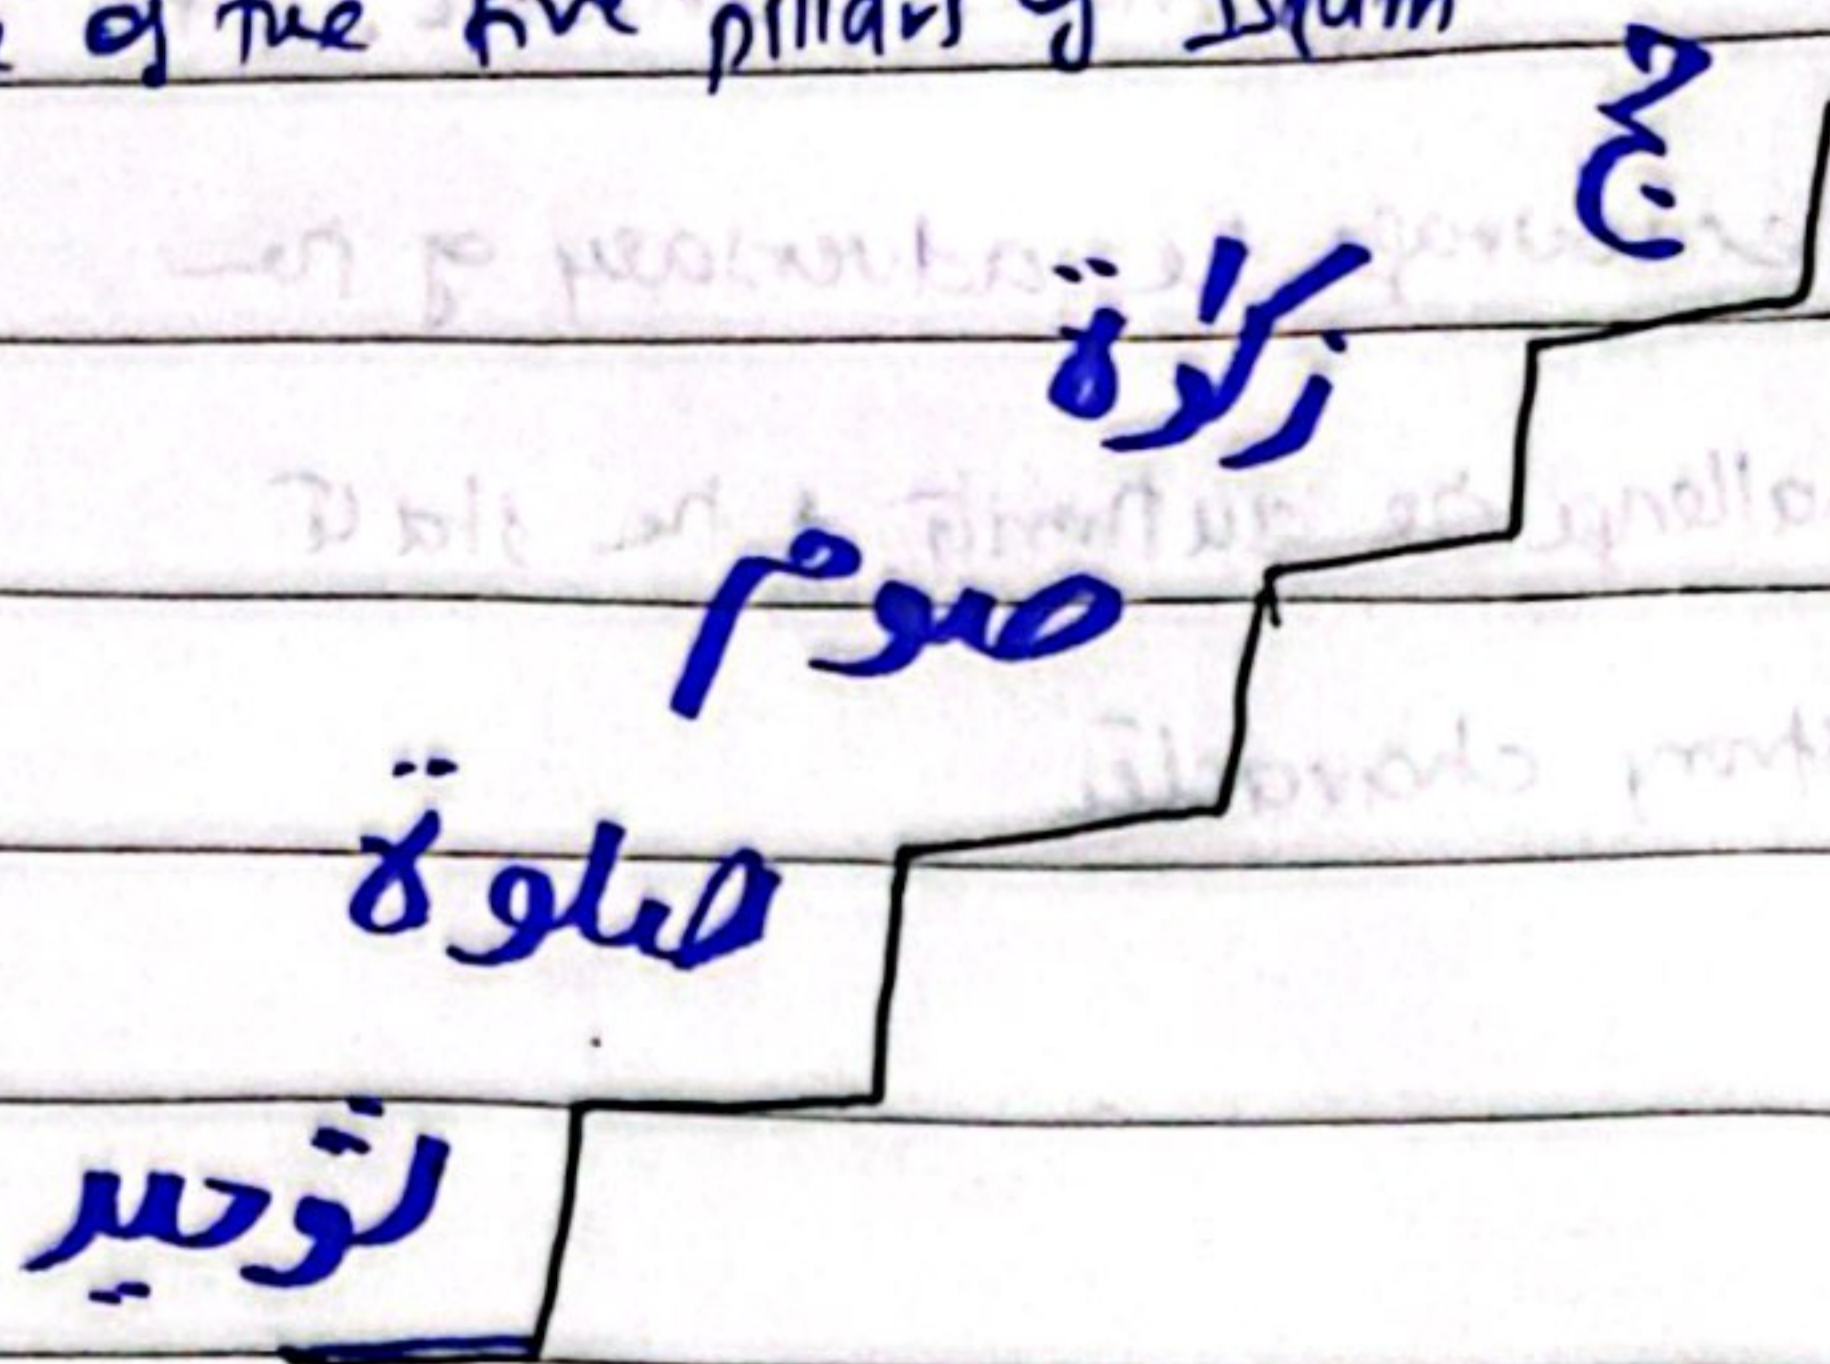 of the five pillars of Islam
حج
زکوٰة
صوم
صلوة
توحید